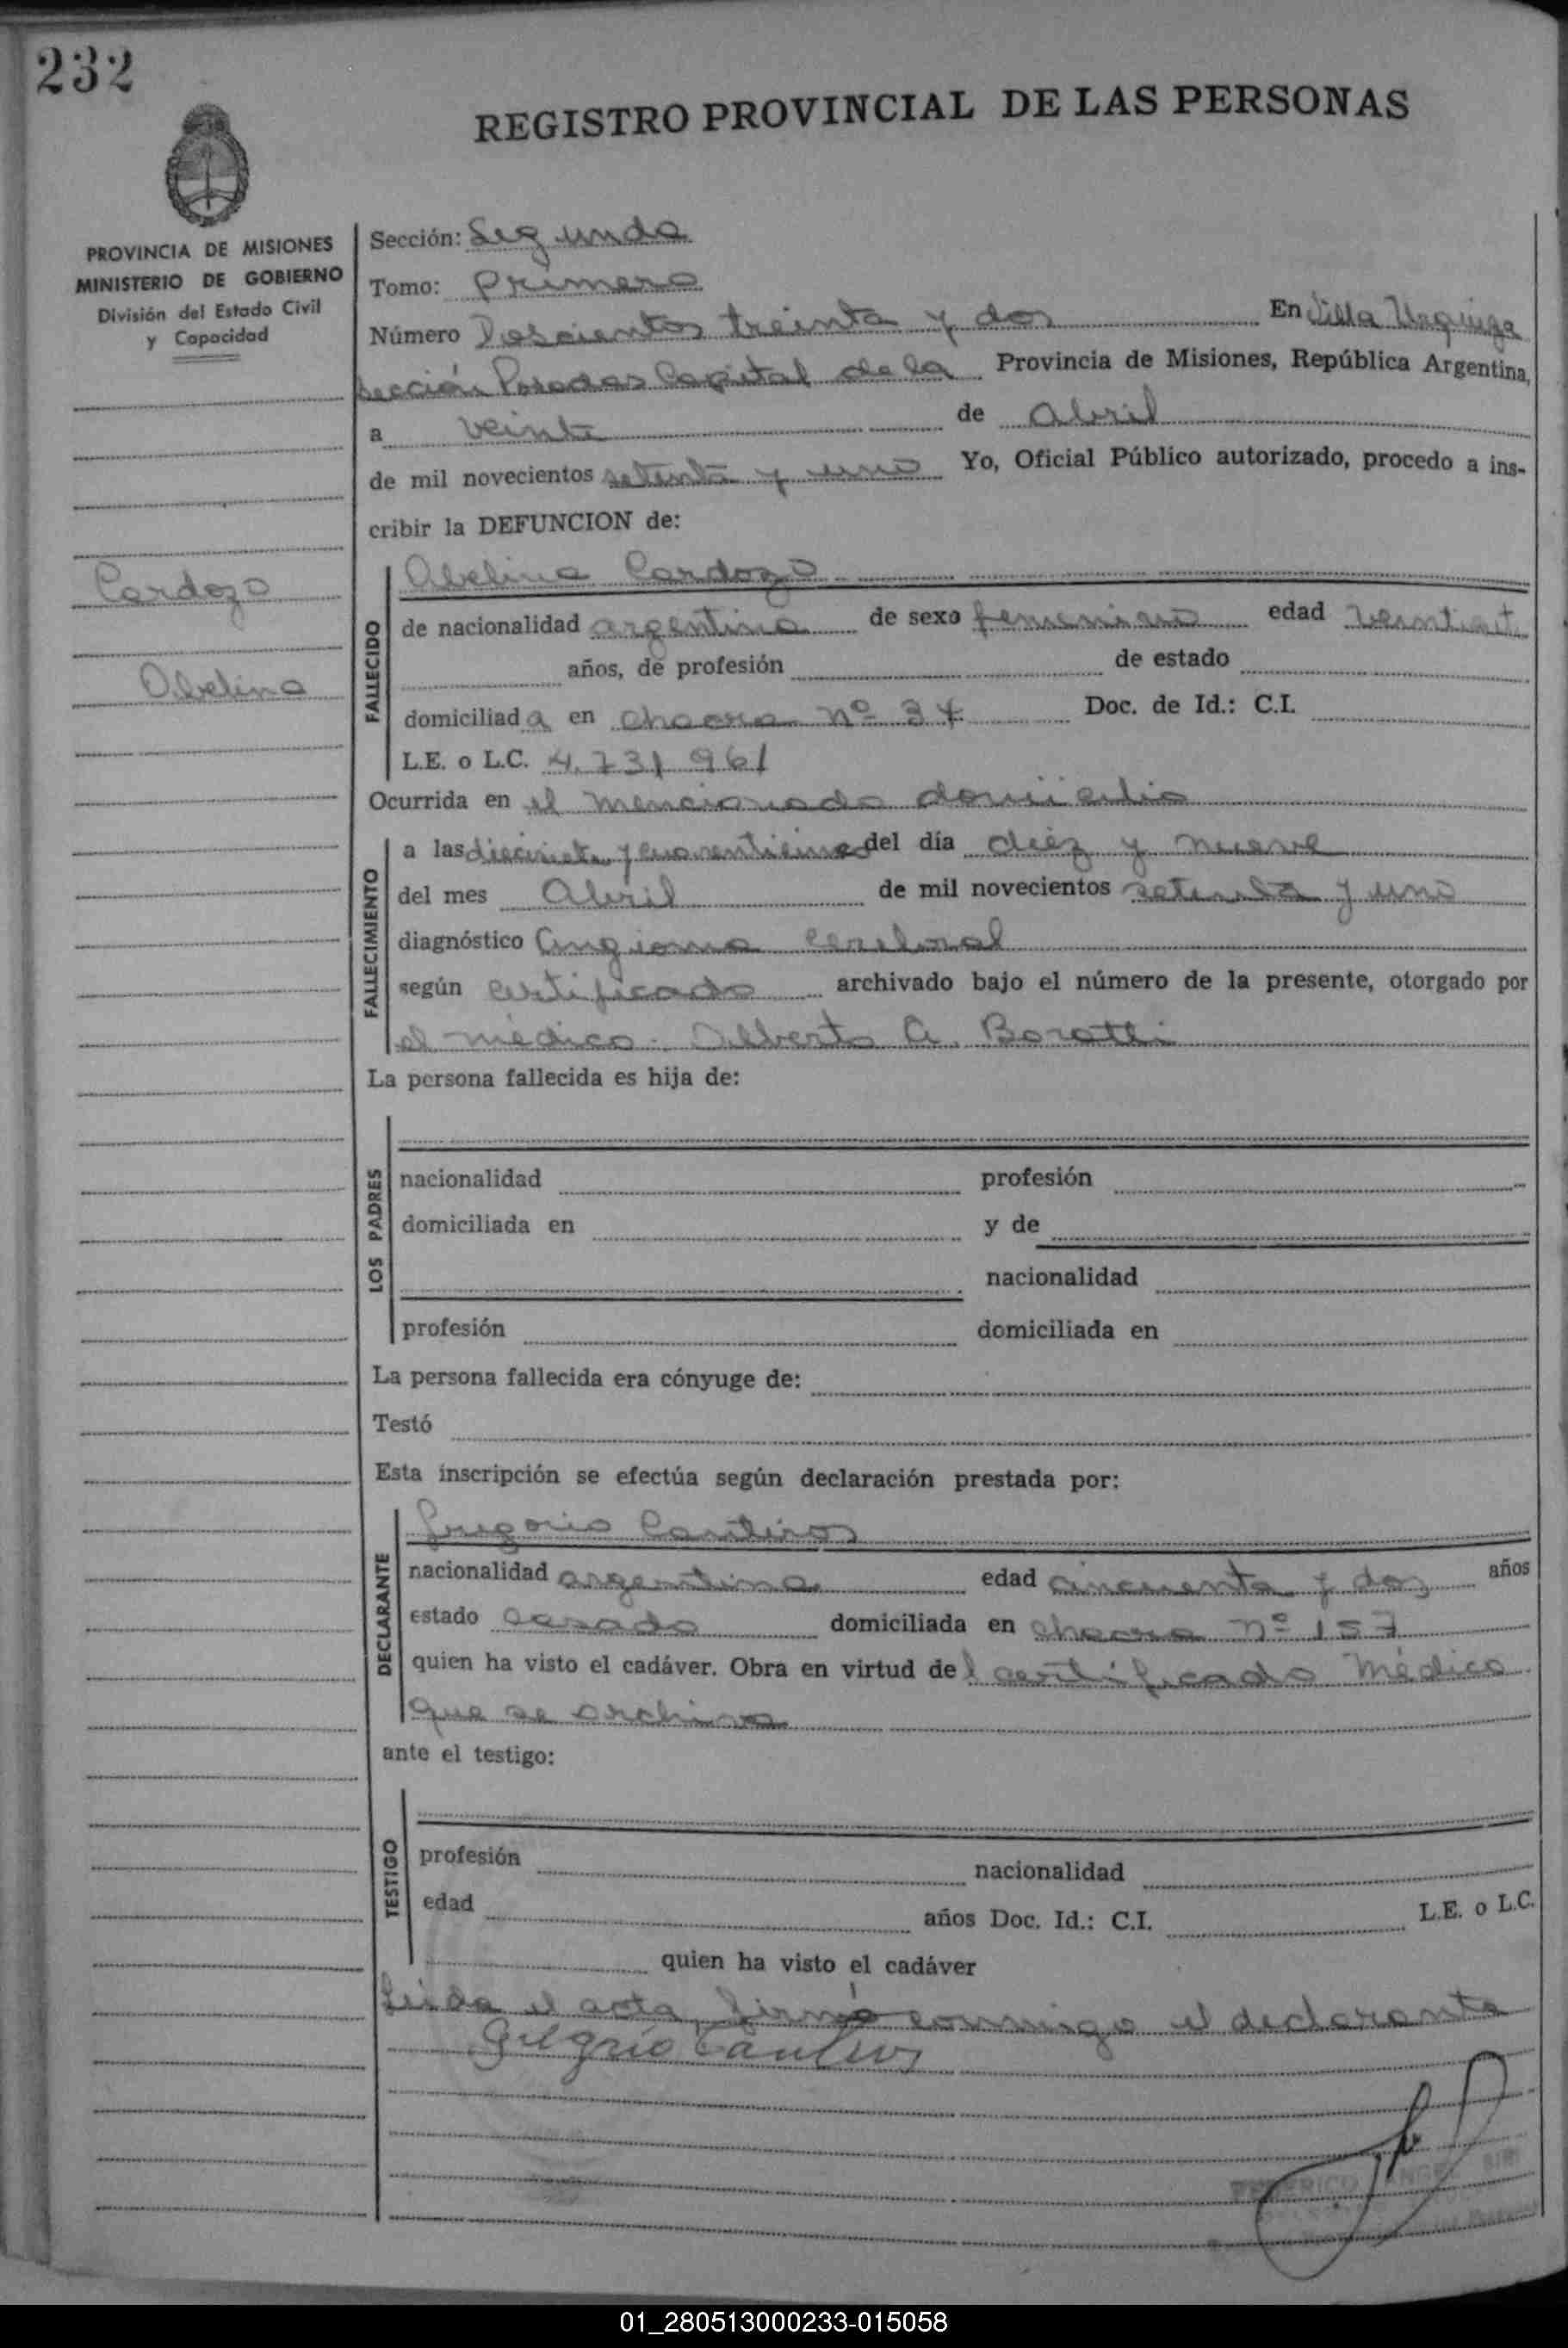 232
REGISTRO PROVINCIAL DE LAS PERSONAS
PROVINCIA DE MISIONES
MINISTERIO DE GOBIERNO
División del Estado Civil
y Capacidad
Cardozo
Abelina
Sección: Segunda
Tomo: Primero
Número Doscientos treinta y dos En Villa Urquiza
sección Posadas Capital de la Provincia de Misiones, República Argentina,
a veinte de Abril
de mil novecientos setenta y uno Yo, Oficial Público autorizado, procedo a ins-
cribir la DEFUNCION de:
FALLECIDO
Abelina Cardozo
de nacionalidad argentina de sexo femenino edad
años, de profesión de estado
domiciliada en chacra nº 34 Doc. de Id.: C.I.
L.E. o L.C. 4.731 961
Ocurrida en el mencionado domicilio
FALLECIMIENTO
a las del día diez y nueve
del mes Abril de mil novecientos setenta y uno
diagnóstico Angioma cerebral
según certificado archivado bajo el número de la presente, otorgado por
el médico. Alberto A.
La persona fallecida es hija de:
LOS PADRES
nacionalidad profesión
domiciliada en y de
nacionalidad
profesión domiciliada en
La persona fallecida era cónyuge de:
Testó
Esta inscripción se efectúa según declaración prestada por:
DECLARANTE
Gregorio Canteros
nacionalidad argentina edad cincuenta y dos años
estado casado domiciliada en chacra nº 157
quien ha visto el cadáver. Obra en virtud del certificado Médico
que se archiva
ante el testigo:
TESTIGO
profesión nacionalidad
edad años Doc. Id.: C.I. L.E. o L.C.
quien ha visto el cadáver
Leída el acta, firmó conmigo el declarante
Gregorio Canteros
01_280513000233-015058